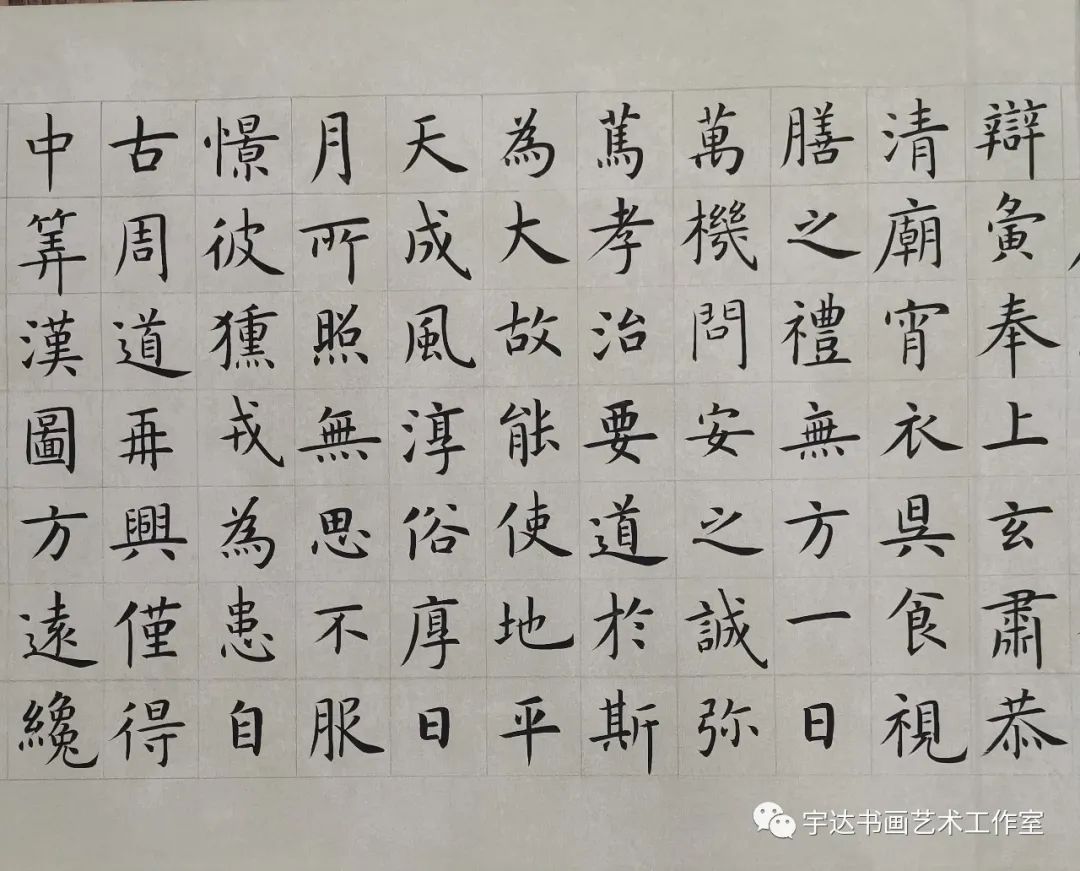 辯寅奉上玄肅恭
清廟宵衣昃食視
膳之禮無方一日
萬機問安之誠弥
篤孝治要道於斯
為大故能使地平
天成風淳俗厚日
月所照無思不服
憬彼獯戎為患自
古周道再興僅得
中筭漢圖方遠纔
宇达书画艺术工作室